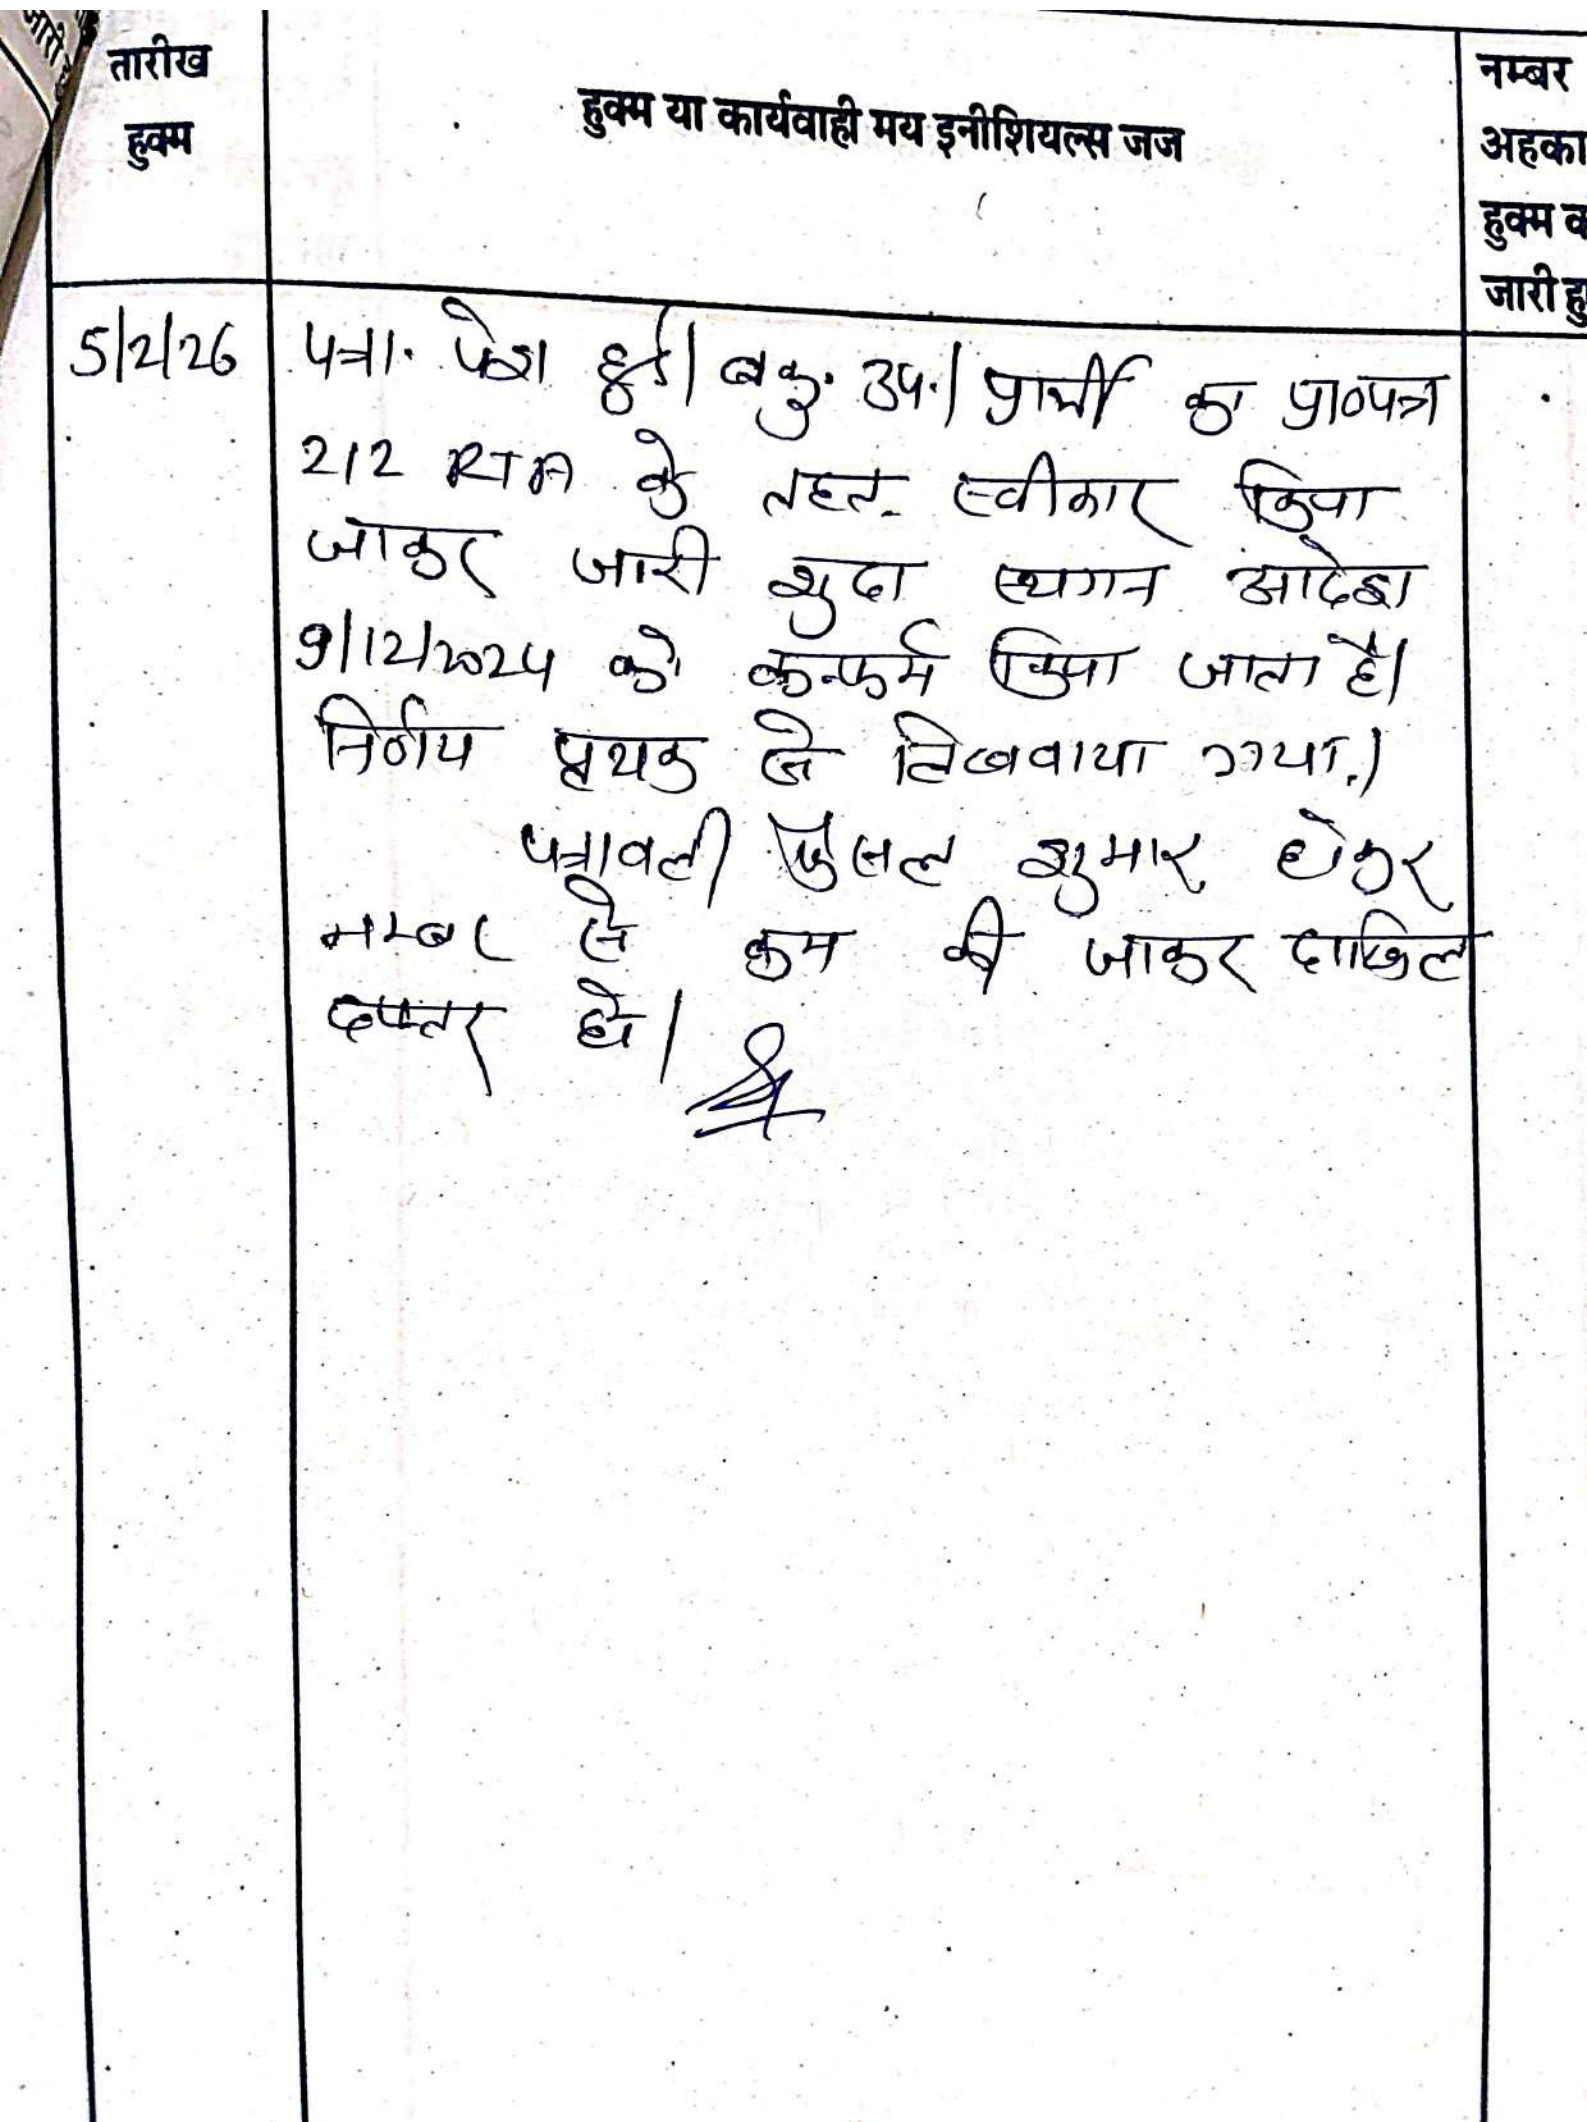 जारी
तारीख
हुक्म
हुक्म या कार्यवाही मय इनीशियल्स जज
नम्बर
अहका
हुक्म क
जारी हु
5/2/26
पत्रा. पेश हुई। वकु. उप.। प्रार्थी का प्रा०पत्र
212 RTA के तहत स्वीकार किया
जाकर जारी शुदा स्थगन आदेश
9/12/2024 को कन्फर्म किया जाता है।
निर्णय पृथक से लिखवाया गया।
पत्रावली फैसल शुमार होकर
नम्बर से कम की जाकर दाखिल
दफ्तर हो।